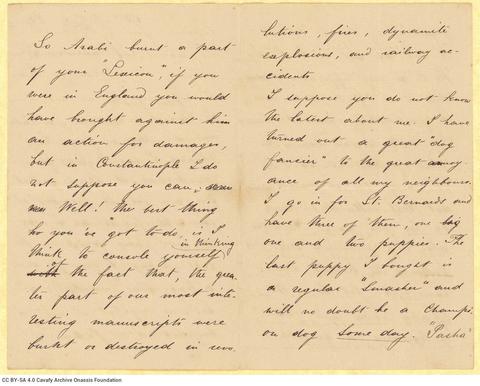 So Arabi burnt a part
of your "Lexicon", if you
were in England you would
have brought against him
an action for damages,
but in Constantinople I do
not suppose you can;
Well! The best thing
ho you've got to do, is I
think to console yourself in thinking
with of the fact that, the grea
ter part of our most inte-
resting manuscripts were
burnt or destroyed in revo
lutions, fires, dynamite
explosions, and railway ac-
cidents
I suppose you do not know
the latest about me. I have
turned out a great "dog
fancier" to the great annoy
ance of all my neighbours.
I go in for St. Bernards and
have three of them, one big
one and two puppies. The
last puppy I bought is
a regular "Smasher" and
will no doubt be a Champi-
on dog some day. "Pasha"
CC BY-SA 4.0 Cavafy Archive Onassis Foundation